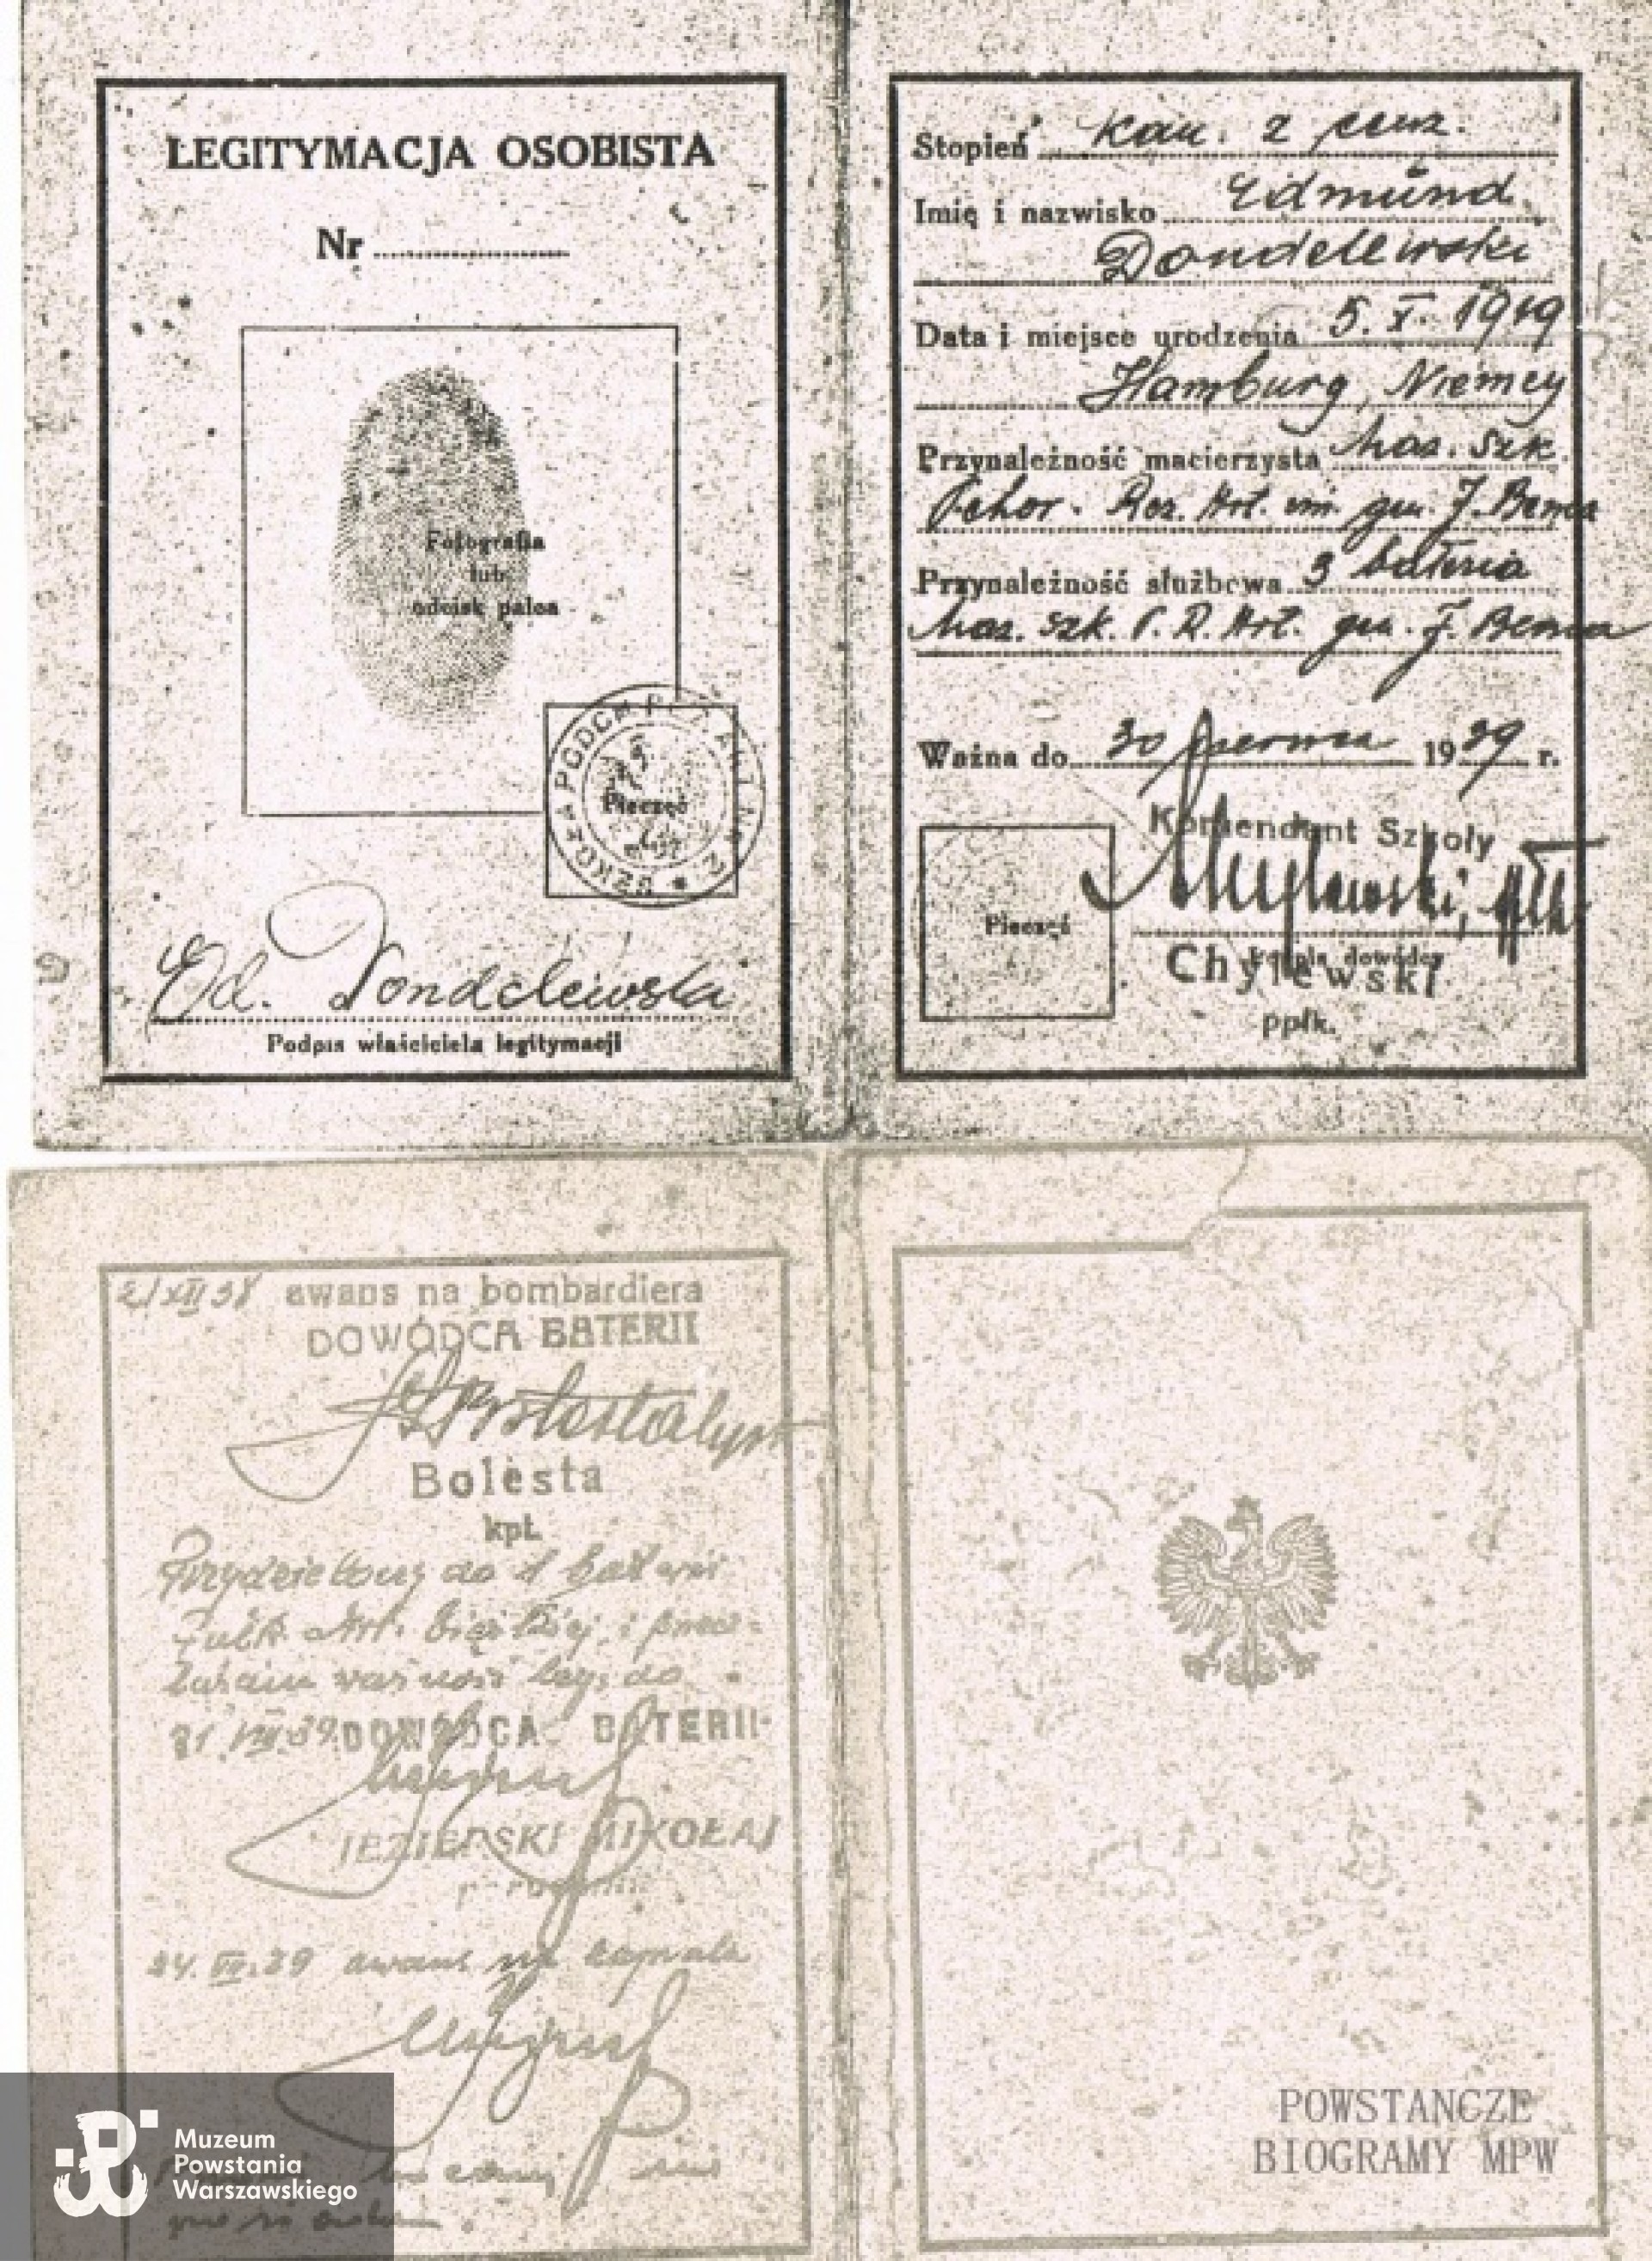 LEGITYMACJA OSOBISTA
Nr
Fotografia
lub
odcisk palca
SZKOŁA PODCH
Pieczęć
Ed. Dondelewski
Podpis właściciela legitymacji
Stopień kan. z cenz.
Imię i nazwisko Edmund
Dondelewski
Data i miejsce urodzenia 5. X. 1919
Hamburg, Niemcy
Przynależność macierzysta Maz. Szk.
Pchor. Rez. Art. im. gen. J. Bema
Przynależność służbowa 3 bateria
Maz. szk. P. R. Art. gen. J. Bema
Ważna do 30 czerwca 1939 r.
Komendant Szkoły
Pieczęć
Podpis dowódcy
Chylewski
ppłk.
2/XII 38 awans na bombardiera
DOWÓDCA BATERII
Bolesta
kpt.
Przydzielony do 1 baterii
Pułk. Art. Ciężkiej i
ważność leg. do
31.VIII.39. DOWÓDCA BATERII
JEZIERSKI MIKOŁAJ
24. 39 awans na kaprala
Muzeum
Powstania
Warszawskiego
POWSTAŃCZE
BIOGRAMY MPW